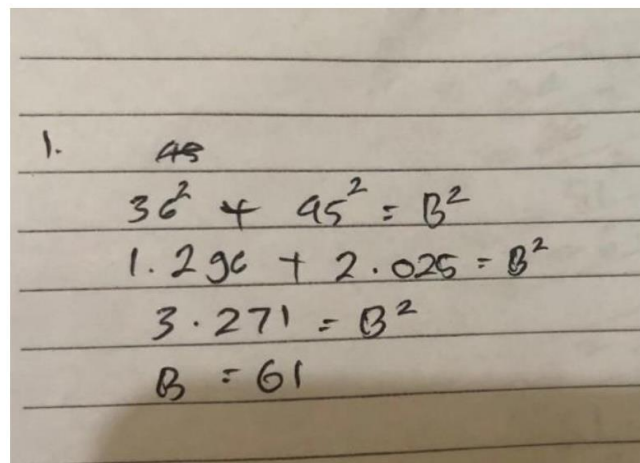 1. 45
36² + 45² = B²
1.296 + 2.025 = B²
3.271 = B²
B = 61